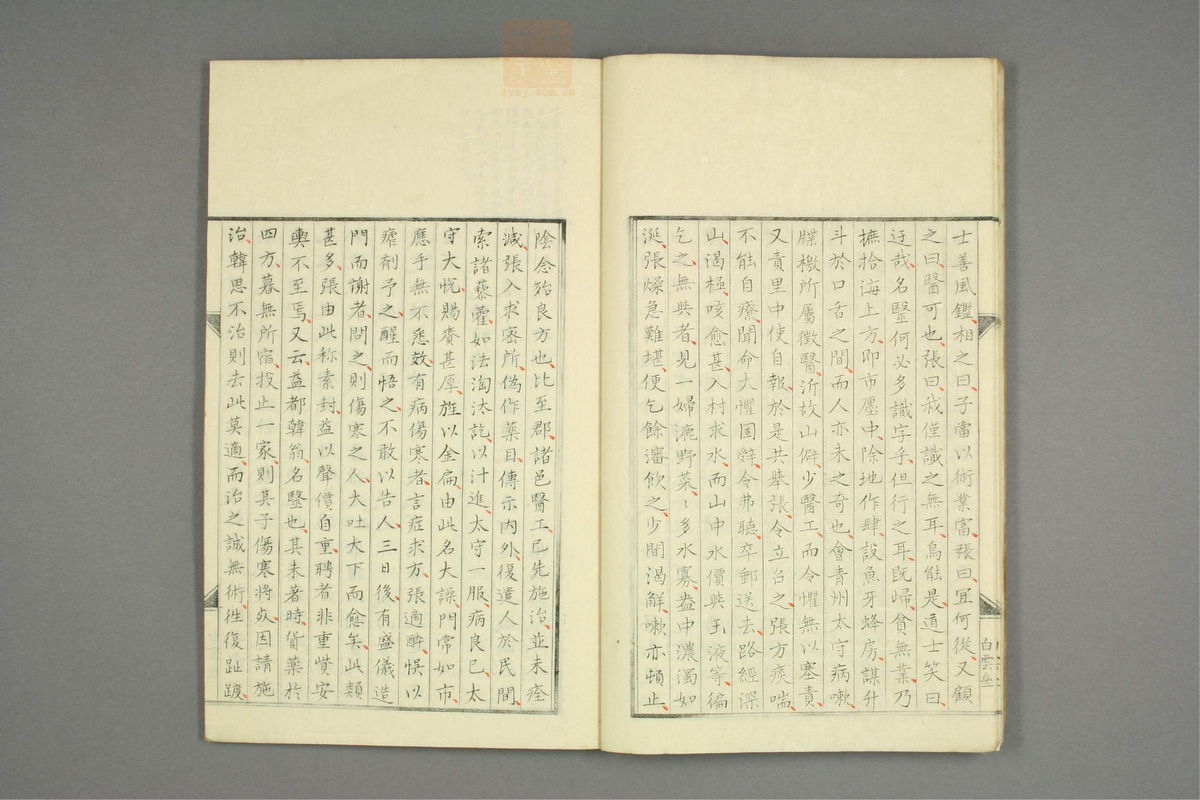 士善風鑑相之曰子當以術業富張曰宜何從又顧
之曰醫可也張曰我僅識之無耳烏能是道士笑曰
迂哉名醫何必多識字乎但行之耳既歸貧無業乃
摭拾海上方即市廛中除地作肆設魚牙蜂房謀升
斗於口舌之間而人亦未之奇也會青州太守病嗽
牒檄所屬徵醫沂故山僻少醫工而令懼無以塞責
又責里中使自報於是共舉張令立召之張方痰喘
不能自療聞命大懼固辭令弗聽卒郵送去路經深
山渴極咳愈甚入村求水而山中水價與玉液等徧
乞之無與者見一婦漉野菜〻多水寡盎中濃濁如
涎張燥急難堪便乞餘瀋飲之少間渴解嗽亦頓止
陰念殆良方也比至郡諸邑醫工已先施治並未痊
減張入求密所偽作藥目傳示內外復遣人於民間
索諸藜藿如法淘汰訖以汁進太守一服病良已太
守大悅賜賚甚厚旌以金扁由此名大譟門常如市
應手無不悉效有病傷寒者言症求方張適醉悞以
瘧劑予之醒而悟之不敢以告人三日後有盛儀造
門而謝者問之則傷寒之人大吐大下而愈矣此類
甚多張由此称素封益以聲價自重聘者非重貲安
輿不至焉又云益都韓翁名醫也其未著時貨藥於
四方暮無所宿投止一家則其子傷寒將死因請施
治韓思不治則去此莫適而治之誠無術徃復跮踱
白雲
zysj.com.cn